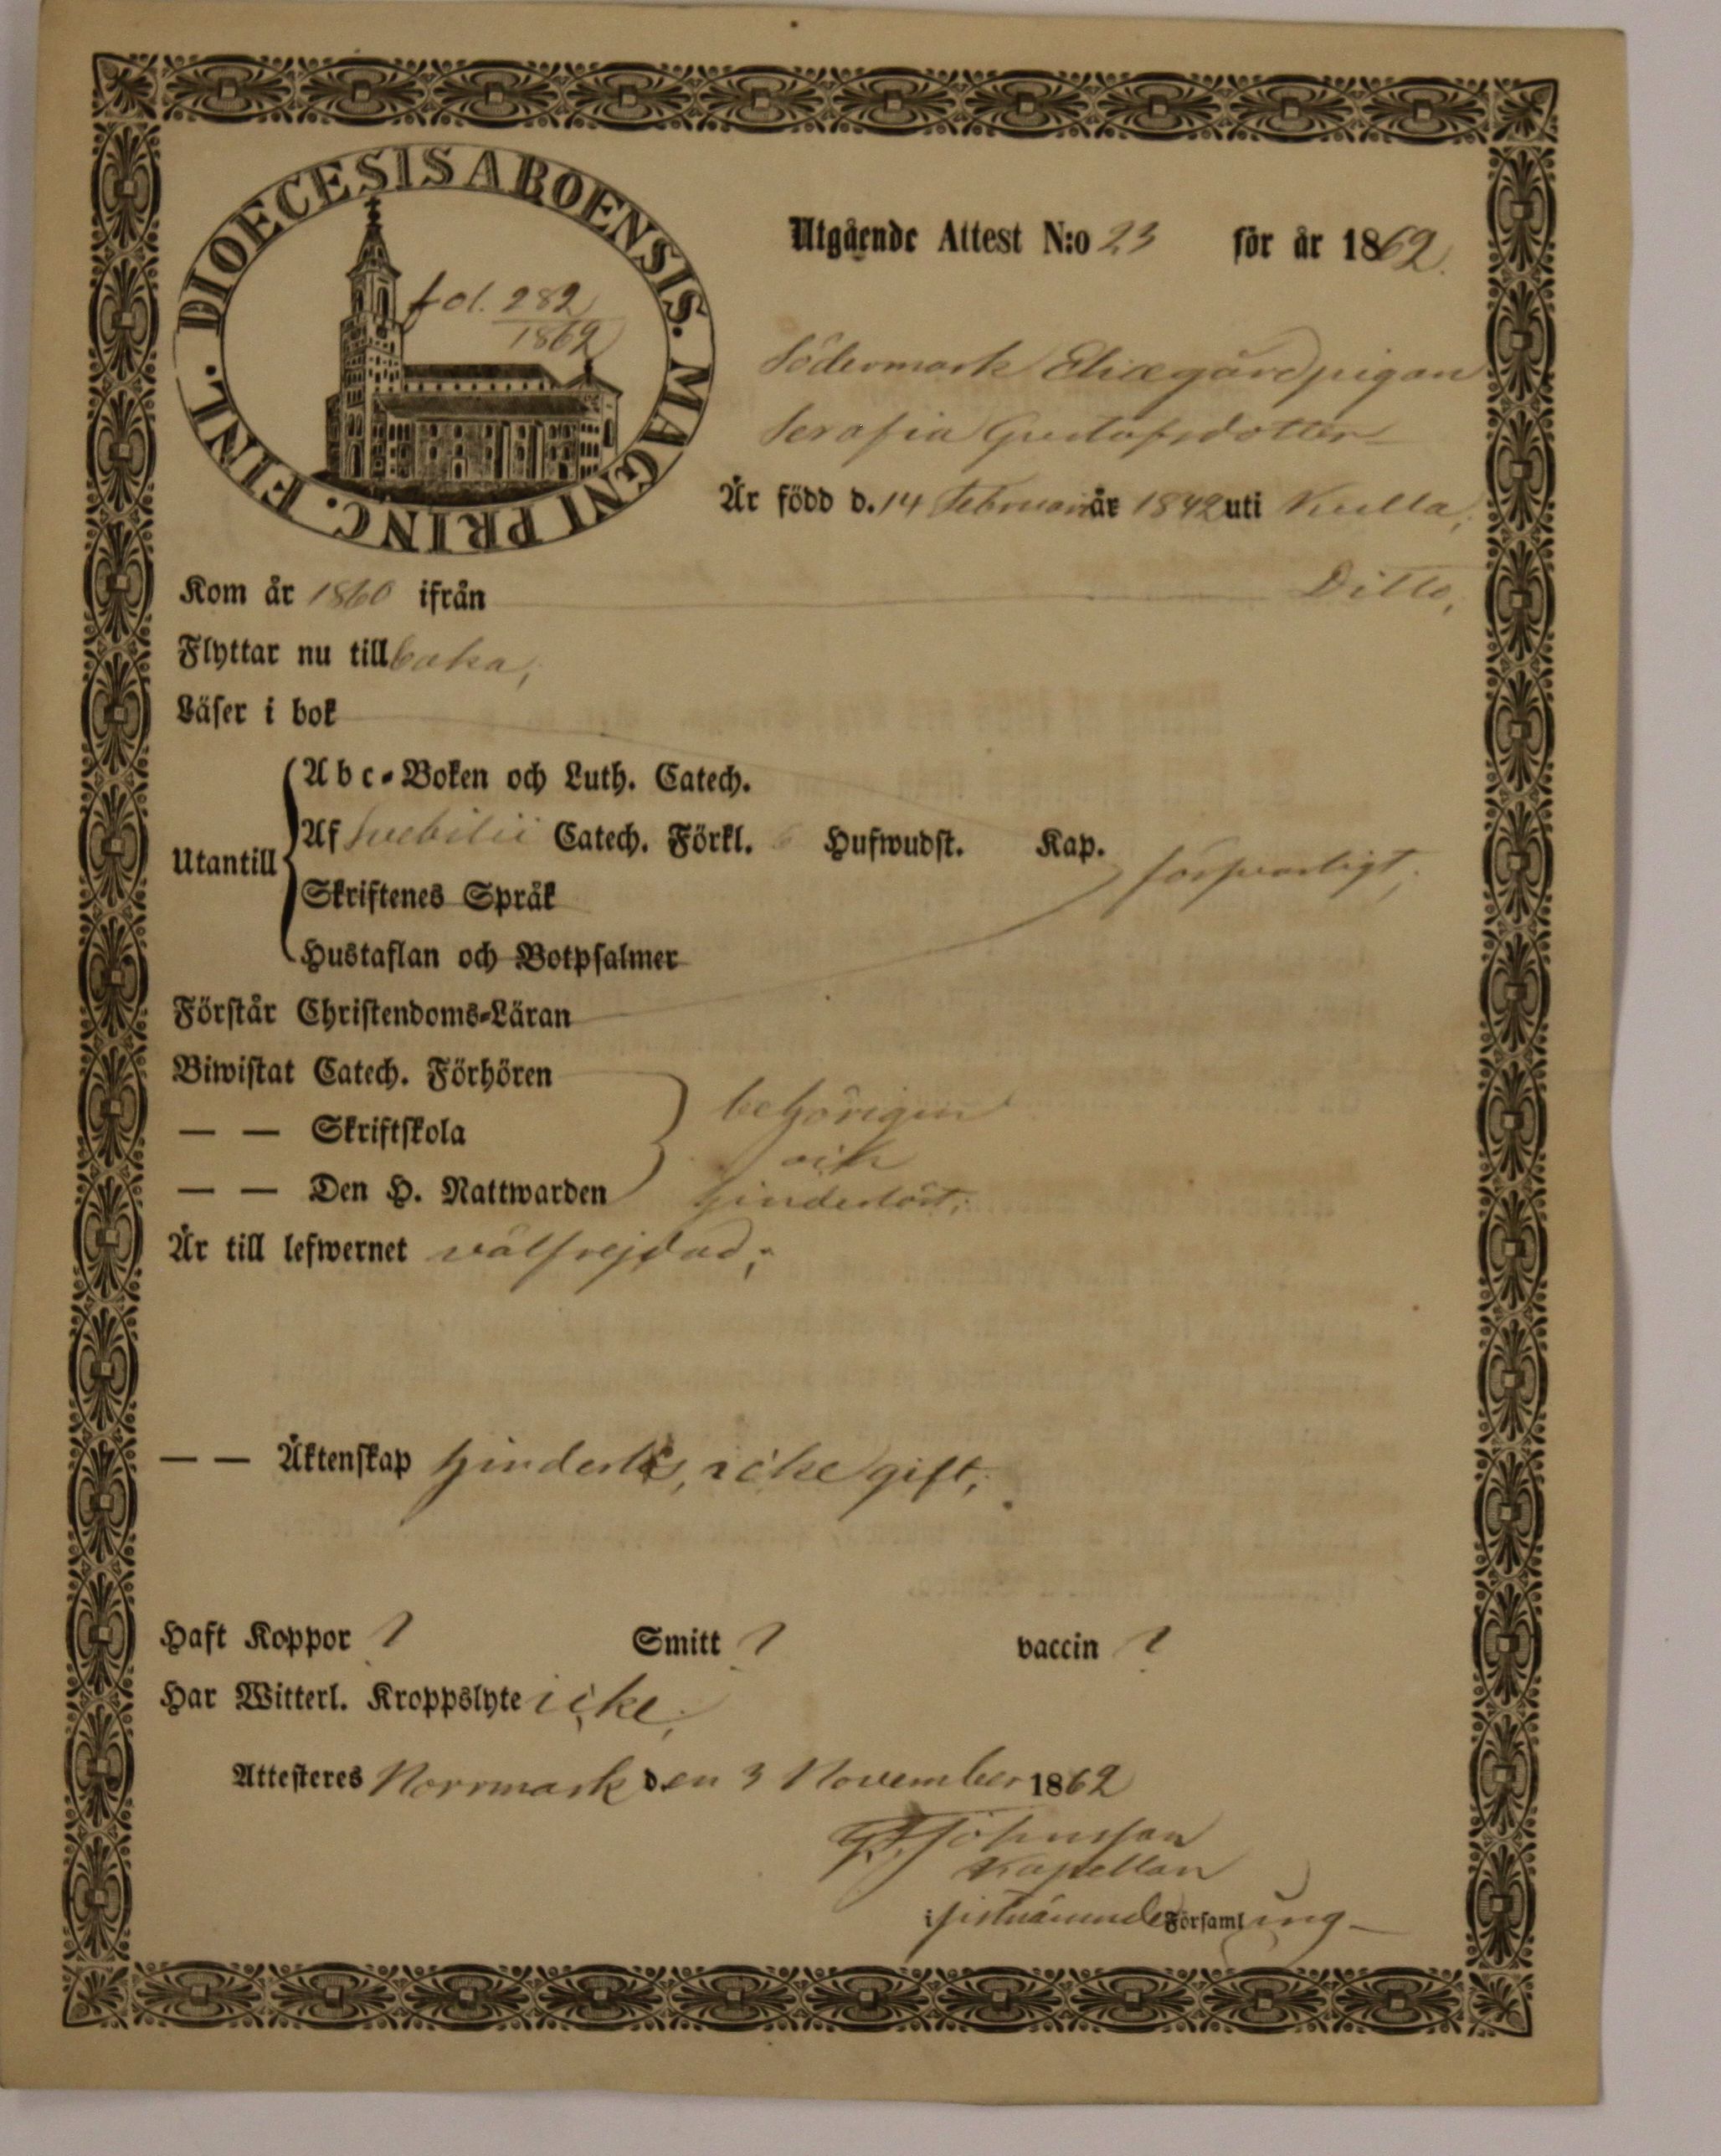 DIOECESIS ABOENSIS. MAGNI PRINC. FINL.
fol. 282
1862
Utgående Attest N:o 23 för år 1862.
Södermark Eliægård pigan
Serafia Gustafsdotter
Är född d. 14 Februari år 1842 uti Kulla,
Kom år 1860 ifrån Ditto,
Flyttar nu till baka,
Läser i bok
Abc-Boken och Luth. Catech.
Utantill
Af Svebilii Catech. Förkl. 6 Hufwudst. Kap.
försvarligt,
Skriftenes Språk
Hustaflan och Botpsalmer
Förstår Christendoms-Läran
Biwistat Catech. Förhören
behörigen
— — Skriftskola
och
— — Den H. Nattwarden
hinderlöst,
Är till lefwernet välfrejdad;
— — Äktenskap hinderlös, icke gift,
Haft Koppor ? Smitt ? vaccin ?
Har Witterl. Kroppslyte icke,
Attesteres Norrmark den 3 November 1862
Johnsson
Kapellan
i sistnämnde Församling